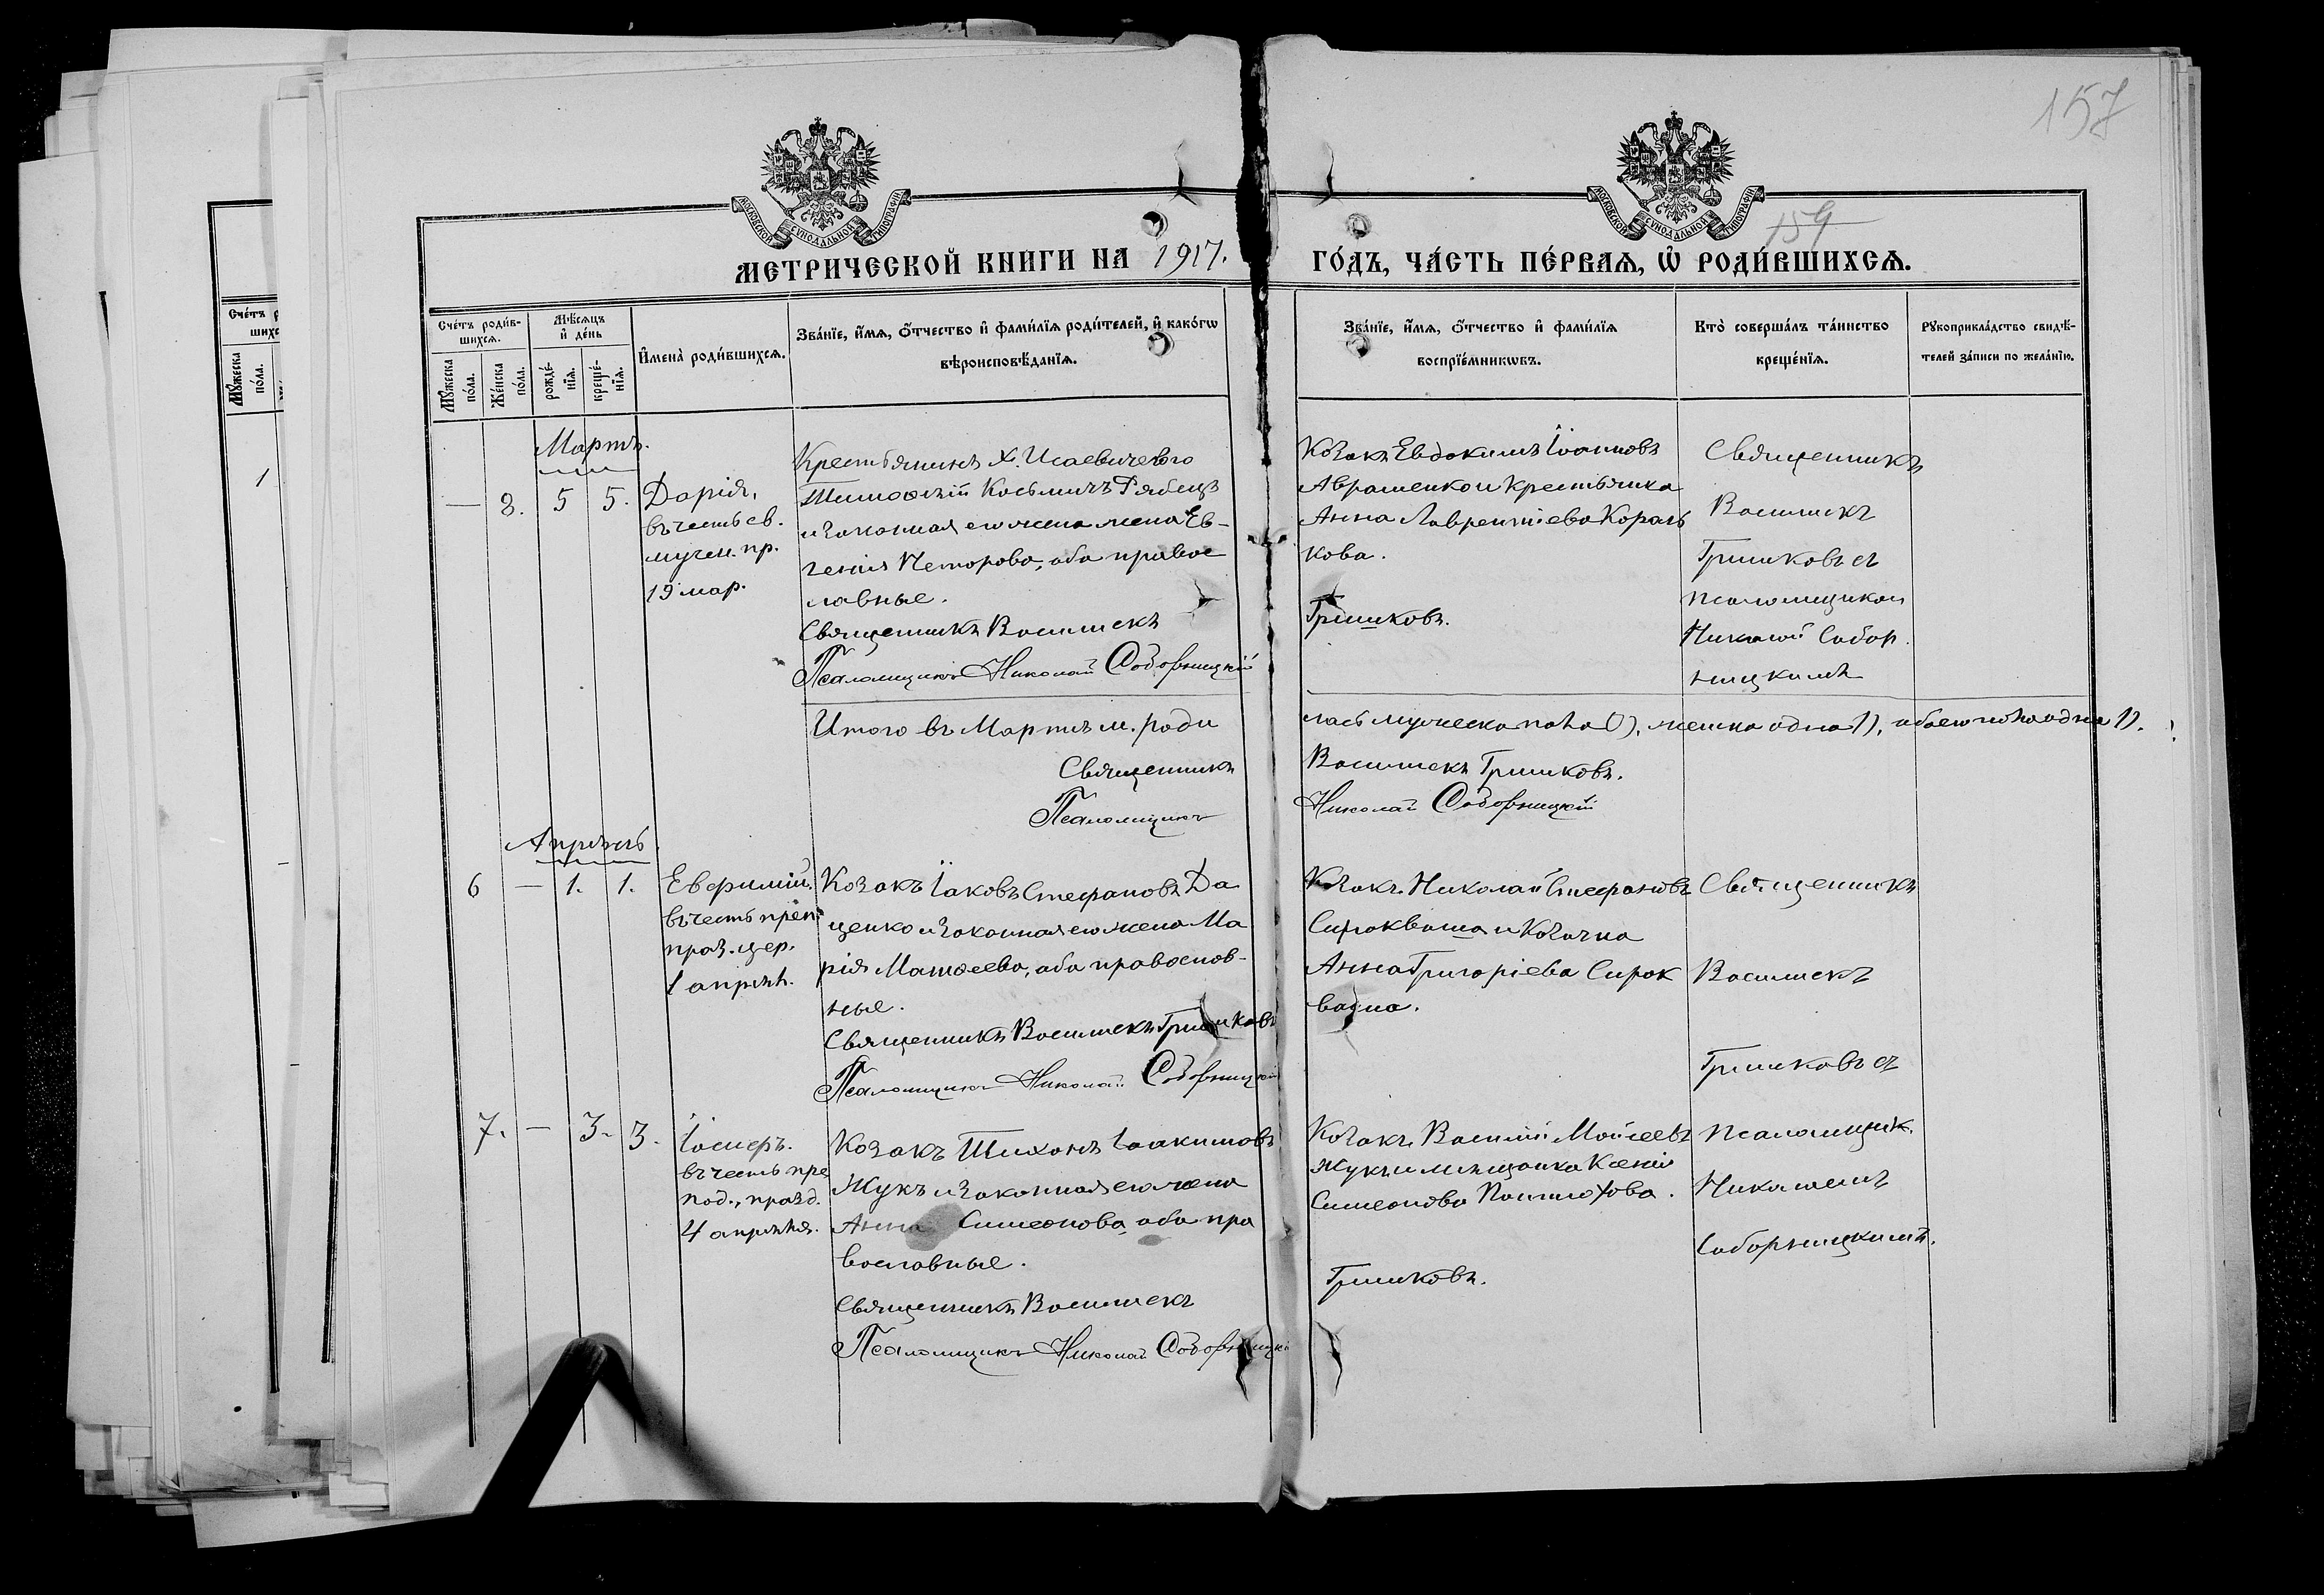 157
159
МОСКОВСКОЙ СУНОДАЛЬНОЙ ТИПОГРАФІИ
МОСКОВСКОЙ СУНОДАЛЬНОЙ ТИПОГРАФІИ
МЕТРИЧЕСКОЙ КНИГИ НА 1917. ГО́ДЪ, ЧА́СТЬ ПЕ́РВАЯ, Ѡ РОДИ́ВШИХСЯ.
Сче́тъ роди́вшихся.
Му́жеска по́ла.
Же́нска по́ла.
Мѣ́сяцъ и де́нь
рожде́нїя.
креще́нїя.
И҆мена̀ роди́вшихся.
Зва́нїе, и҆́мя, ѻ҆́тчество и҆ фами́лїя роди́телей, и҆ како́гѡ
вѣроисповѣ́данїя.
Зва́нїе, и҆́мя, ѻ҆́тчество и҆ фами́лїя
воспрїе́мникѡвъ.
Кто̀ соверша́лъ та́инство
креще́нїя.
Рꙋкоприкла́дство свидѣ́-
телей за́писи по жела́нїю.
Мартъ.
— 8. 5 5.
Дарія,
въ честь св.
мучен. пр.
19 мар.
Крестьянинъ Х. Исаевичевого
Тимоѳей Косьмичъ Рябецъ
и законная его жена Ев-
генія Петорова, оба правос
лавные.
Священникъ Василискъ
Псаломщикъ Николай Соборницкій
Козакъ Евдокимъ Іоанновъ
Авраменко и крестьянка
Анна Лаврентіева Кораль
кова.
Гришковъ.
Священникъ
Василискъ
Гришковъ съ
псаломщиком
Николай Собор.
ницкимъ
Итого въ Мартѣ м. роди
лась мужеска пола 0), женска одна 1), обоего пола одна 1).
Священникъ
Василискъ Гришковъ.
Псаломщикъ
Николай Соборницкій
Апрѣль
6 — 1. 1.
Евфимій.
въ честь преп.
праз. цер.
1 апрѣл.
Козакъ Іаковъ Стефановъ Да
ценко и законная его жена Ма
рія Матѳеева, оба правослов-
ные.
Священникъ Василискъ Гришковъ
Псаломщикъ Николай Соборницкій
Козакъ Николай Стефановъ
Сыроваша и козачка
Анна Григоріева Сирок
вашa.
Священникъ
Василискъ
Гришковъ съ
7. — 3. 3.
Іосифъ.
въ честь пре
под., празд.
4 апрѣля.
Козакъ Тихонъ Іоакимовъ
Жукъ и законная его жена
Анна Симеонова, оба пра
вославные.
Священникъ Василискъ
Псаломщикъ Николай Соборницкі
Козакъ Василій Моисеевъ
Жукъ и мѣщанка Ксенія
Симеонова
Гришковъ.
псаломщик.
Николаемъ
Соборницкимъ.
Сче́тъ
Му́жеска по́ла.
1